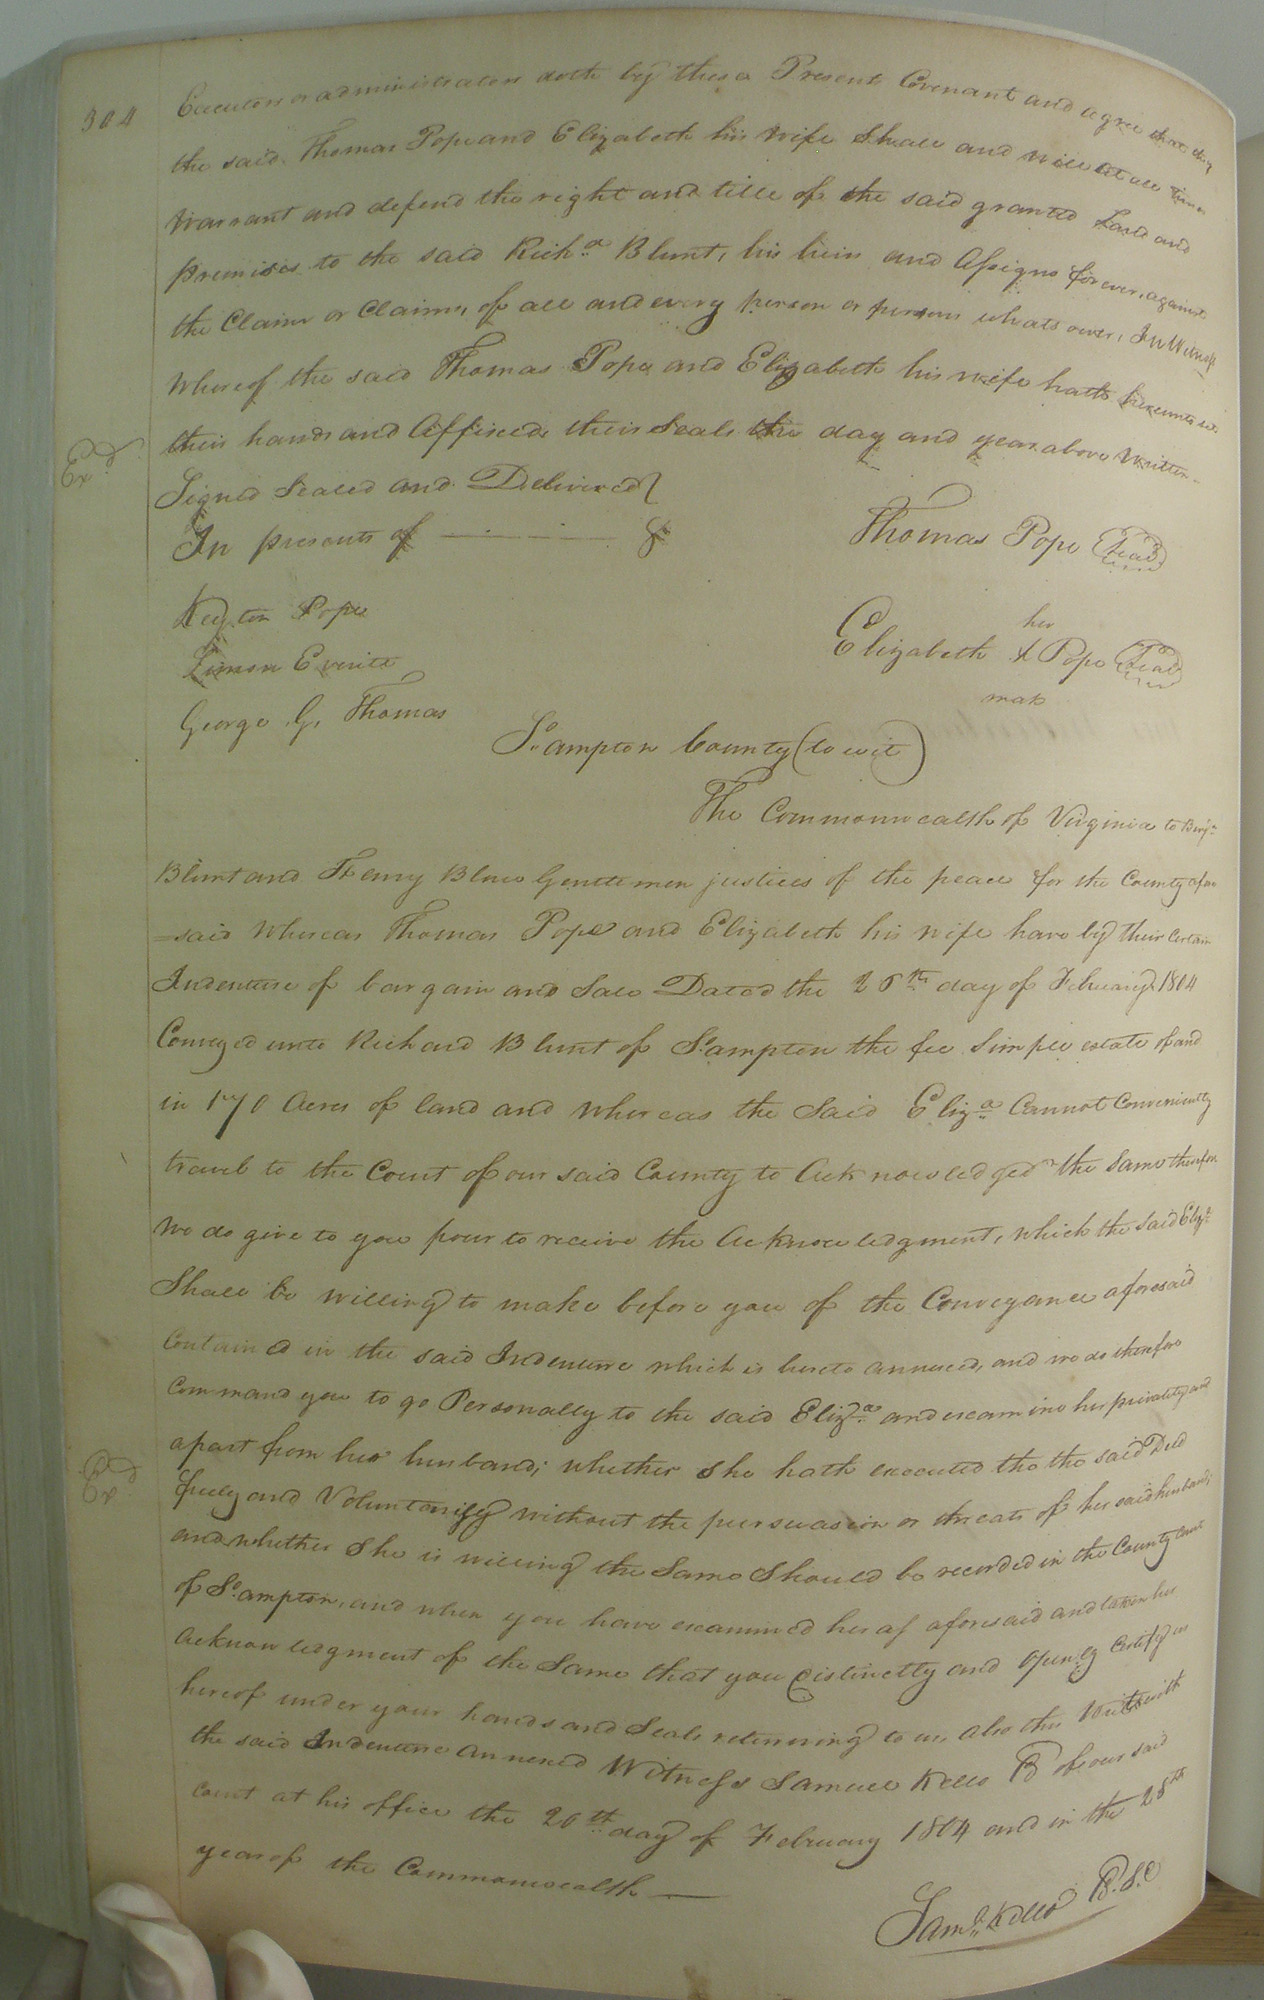 304
Executors or administrators doth by these Present Covenant and agree that they
the said Thomas Pope and Elizabeth his Wife Shall and will at all times
Warrant and defend the right and title of the said granted Land and
premisis to the said Richd. Blunt, his heirs and Assigns forever, against
the Claim or Claims, of all and every person or persons whats over, In Witness
Whereof the said Thomas Pope and Elizabeth his wife hath hereunto set
their hands and Affixed their Seals the day and year above Written
Exd.
Signed Sealed and Delivered
In presents of
Thomas Pope Seal
Simon Everitt
George G. Thomas
her
Elizabeth X Pope Seal
mak
So.ampton County (to wit)
The Commonwealth of Virginia to Benja.
Blunt and Henry Blow Gentlemen justices of the peace for the County afore
=said Whereas Thomas Pope and Elizabeth his wife have by their Certain
Indenture of bargain and Sale Dated the 26th day of February 1804
Conveyed unto Richard Blunt of So.ampton the fee Simple estate of and
in 170 Acres of land and whereas the Said Eliza. Cannot Conveniently
travel to the Court of our said County to Acknowledged the Same therefore
We do give to you power to receive the Acknowledgment, which the said Eliza.
Shall be willing to make before you of the Conveyance aforesaid
Contained in the said Indenture which is hereto annexed, and we do therefore
Command you to go Personally to the said Eliza. and examine her privately and
apart from her husband; whether She hath executed the the said Deed
Exd.
freely and Voluntarily without the persuasion or threats of her said husband;
and whether She is willing the Same Should be recorded in the County Court
of So.ampton, and when you have examined her as aforesaid and taken her
Acknowledgment of the Same that you distinctly and openly Certify us
hereof under your hands and Seals returning to us, also this Writ with
the said Indenture annexed Witness Samuel Kello of our said
Court at his office the 20th day of February 1804 and in the 28th
year of the Commonwealth
Saml. Kello